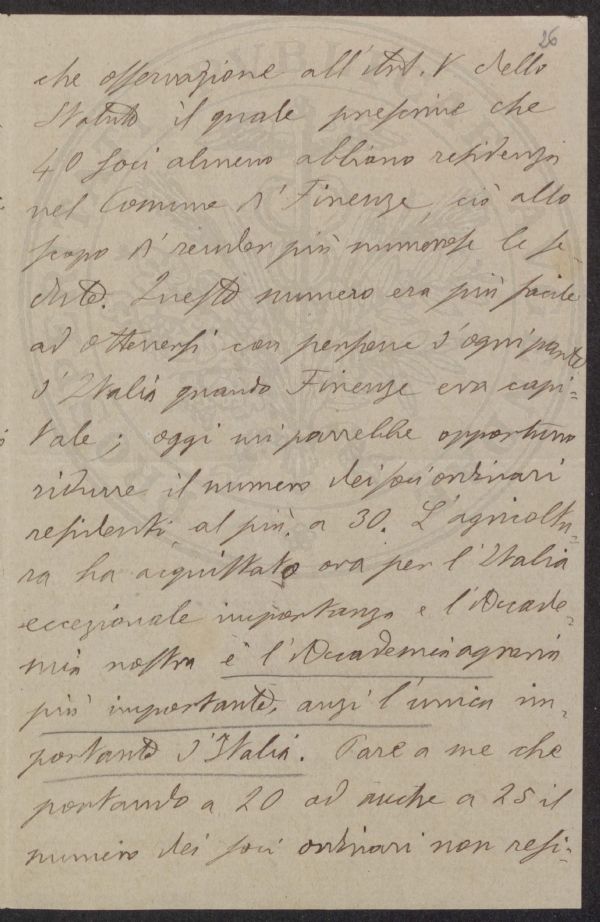 26
che osservazione all'Art. V dello
Statuto il quale prescrive che
40 Soci almeno abbiano residenza
nel Comune di Firenze, ciò allo
scopo di render più numerose le se-
dute. Questo numero era più facile
ad ottenersi con persone d'ogni parte
d'Italia quando Firenze era capi-
tale; oggi mi parrebbe opportuno
ridurre il numero dei soci ordinari
residenti al più a 30. L'agricoltu-
ra ha acquistato ora per l'Italia
eccezionale importanza e l'Accade-
mia nostra è l'Accademia agraria
più importante, anzi l'unica im-
portante d'Italia. Pare a me che
portando a 20 od anche a 25 il
numero dei soci ordinari non resi-